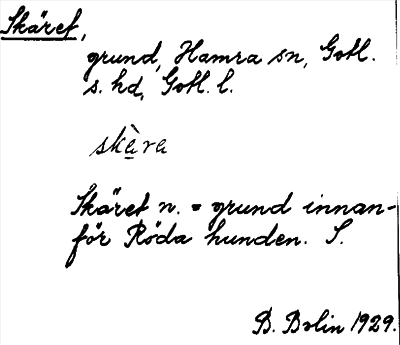 Skäret,
grund, Hamra sn, Gotl.
s. hd, Gotl. l.
skä̀ra
Skäret n. = grund innan-
för Röda hunden. S.
B. Bolin 1929.